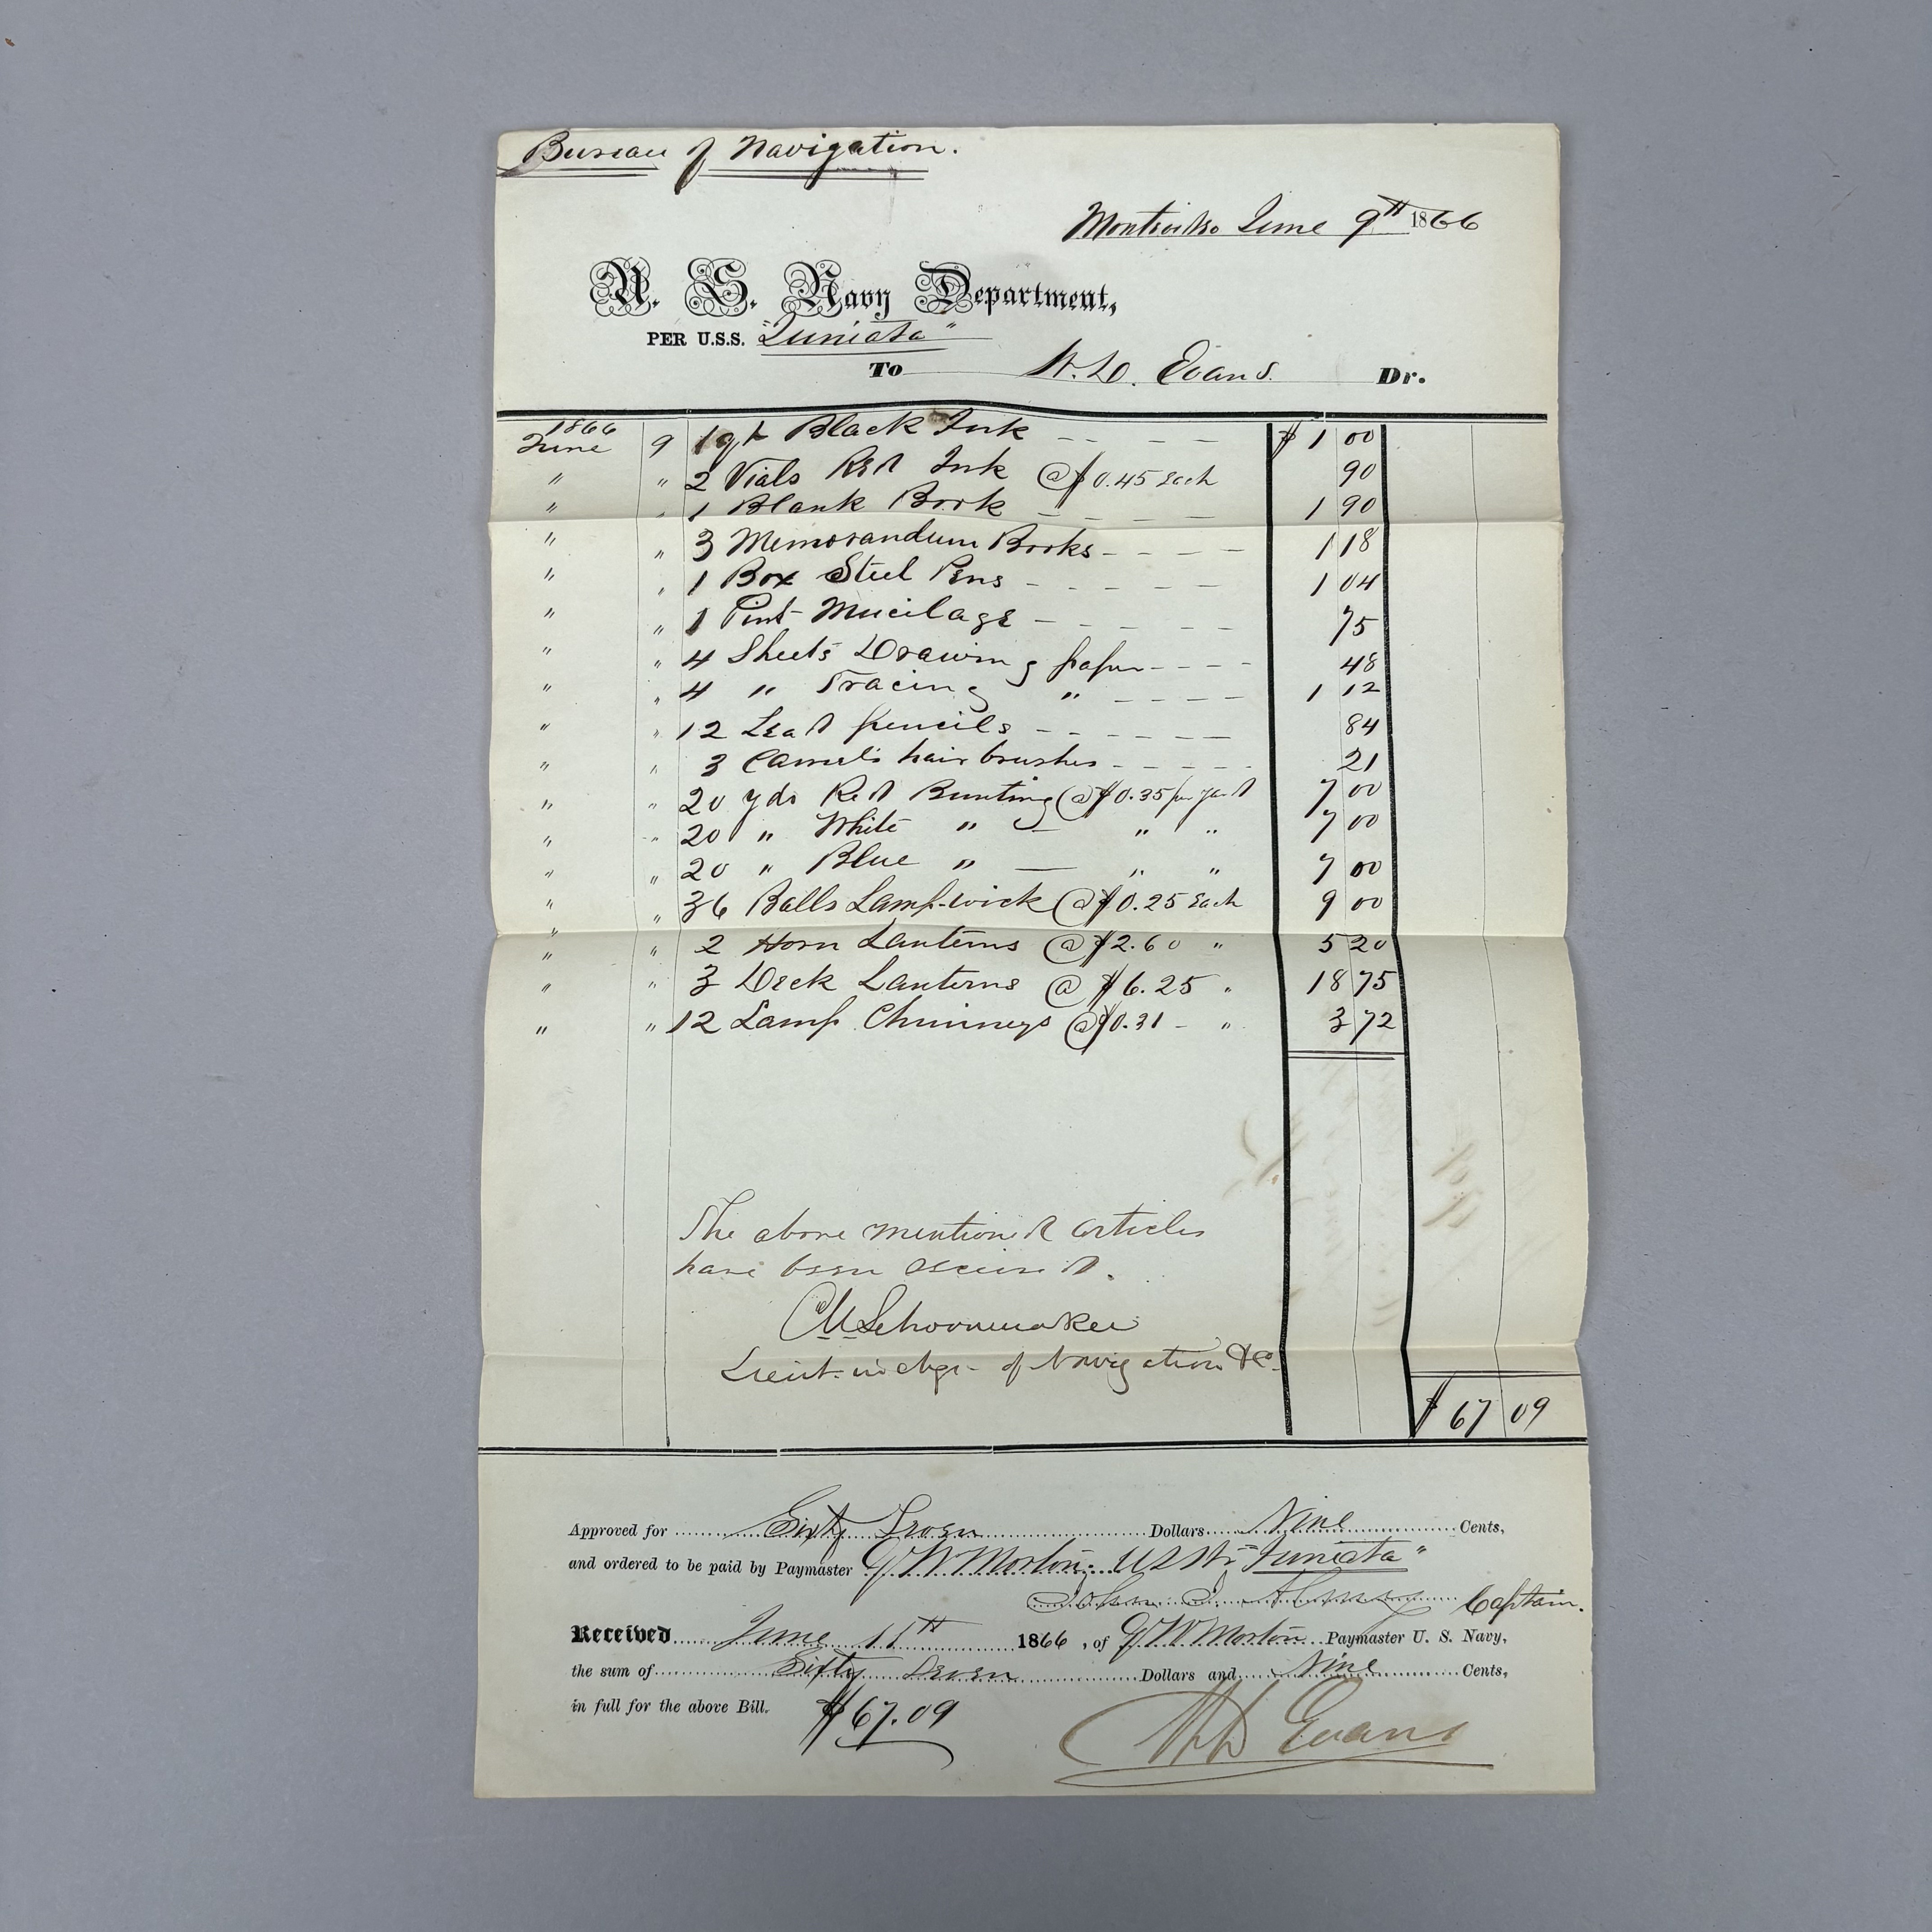 Bureau of Navigation.
Montevideo June 9th 1866
U. S. Navy Department,
PER U.S.S. "Juniata"
To H. D. Evans. Dr.
1866
June 9 1 qt Black Ink - - - - $ 1 00
" " 2 Vials Red Ink @ $0.45 Each 90
" " 1 Blank Book - - - - 1 90
" " 3 Memorandum Books - - - - 1 18
" " 1 Box Steel Pens - - - - - 1 04
" " 1 Pint Mucilage - - - - - 75
" " 4 Sheets Drawing paper - - - - 48
" " 4 " Tracing " - - - - 1 12
" " 12 Lead pencils - - - - - - 84
" " 3 Camel's hair brushes - - - - - 21
" " 20 yds Red Bunting @ $0.35 per yard 7 00
" " 20 " White " — " " 7 00
" " 20 " Blue " — " " 7 00
" " 36 Balls Lamp-wick @ $0.25 Each 9 00
" " 2 Horn Lanterns @ $2.60 " 5 20
" " 3 Deck Lanterns @ $6.25 " 18 75
" " 12 Lamp Chimneys @ $0.31 - " 3 72
The above mentioned articles
have been received.
CM Schoonmaker
Lieut. in chge - of Navigation &c.
$ 67 09
Approved for Sixty Seven Dollars Nine Cents,
and ordered to be paid by Paymaster G W Morton. USS "Juniata"
John J. Almy Captain.
Received June 11th 1866, of G W Morton Paymaster U. S. Navy,
the sum of Sixty Seven Dollars and Nine Cents,
in full for the above Bill. $67.09
H D Evans